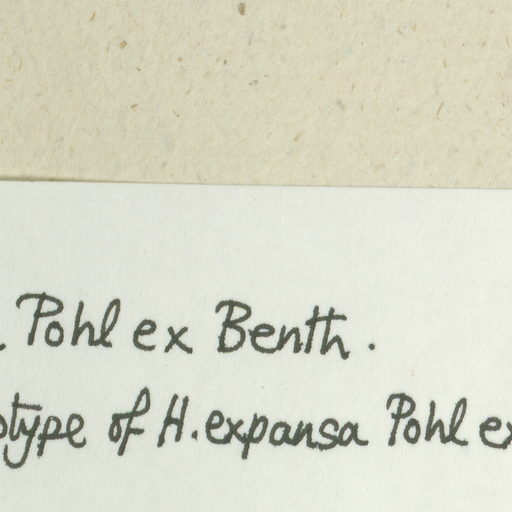 Pohl ex Benth.
otype of H. expansa Pohl ex